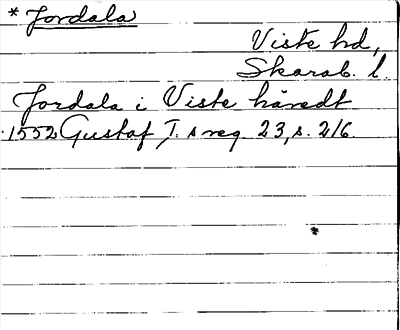 * Jordala
Viste hd,
Skarab. l.
Jordala i Viste häredt
1552 Gustaf I. s reg. 23, s. 216.